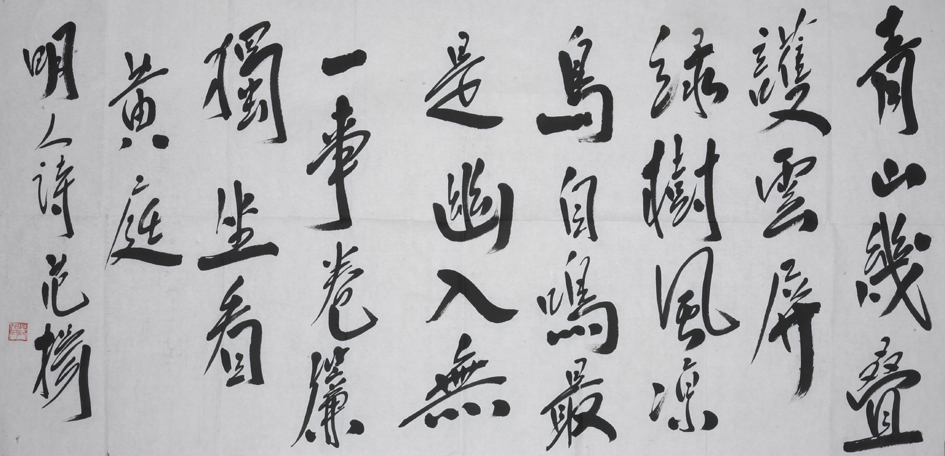 青山幾疊
護雲屏
綠樹風凉
鳥自鳴最
是幽人無
一事卷簾
獨坐看
黃庭
明人詩范撝